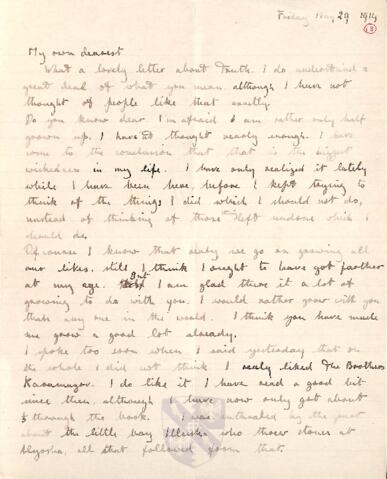 Friday May 29 1914
(3)
My own dearest
What a lovely letter about Truth. I do understand a
great deal of what you mean, although I have not
thought of people like that exactly.
Do you know dear I'm afraid I am rather only half
grown up. I have not thought nearly enough. I have
come to the conclusion that that is the biggest
wickedness in my life. I have only realized it lately
while I have been here, before I kept trying to
think of the things I did which I should not do,
instead of thinking of those I left undone which I
should do.
Of course I know that we go on growing all
our lives, still I think I ought to have got farther
at my age. But I am glad there is a lot of
growing to do with you. I would rather grow with you
than any one in the world. I think you have made
me grow a good lot already.
I spoke too soon when I said yesterday that on
the whole I did not think I really liked The Brothers
Karamazov. I do like it. I have read a good bit
since then, although I have now only got about
through the book. I was enthralled by the part
about the little boy Ilusha who threw stones at
Alyosha, all that followed from that.